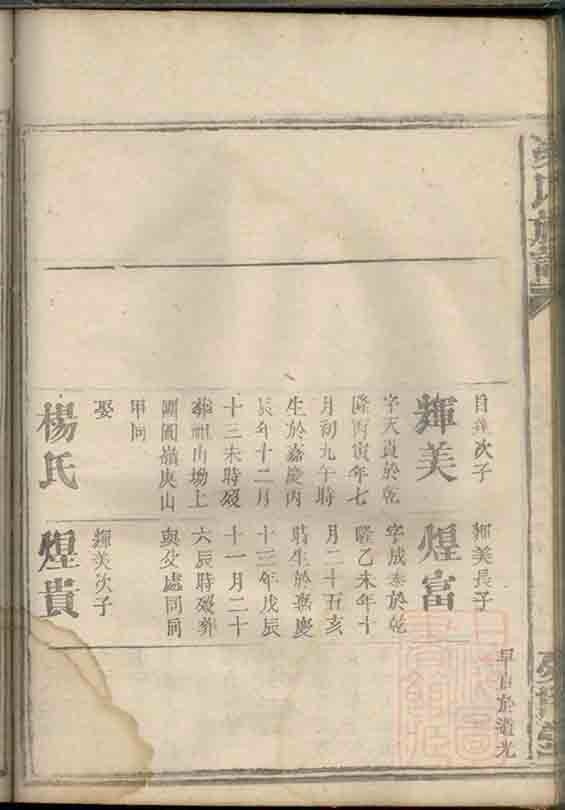 氏族
次子
輝美
字天貴於乾
隆丙寅年七
月初九午時
生於嘉慶丙
辰年十二月
十三未時歿
葬祖山坳上
圍嶺庚山
甲向
娶
楊氏
輝美長子
煌富
字成泰於乾
隆乙未年十
月二十五亥
時生於嘉慶
十三年戊辰
十一月二十
六辰時歿葬
與父處同向
輝美次子
煌貴
於道光